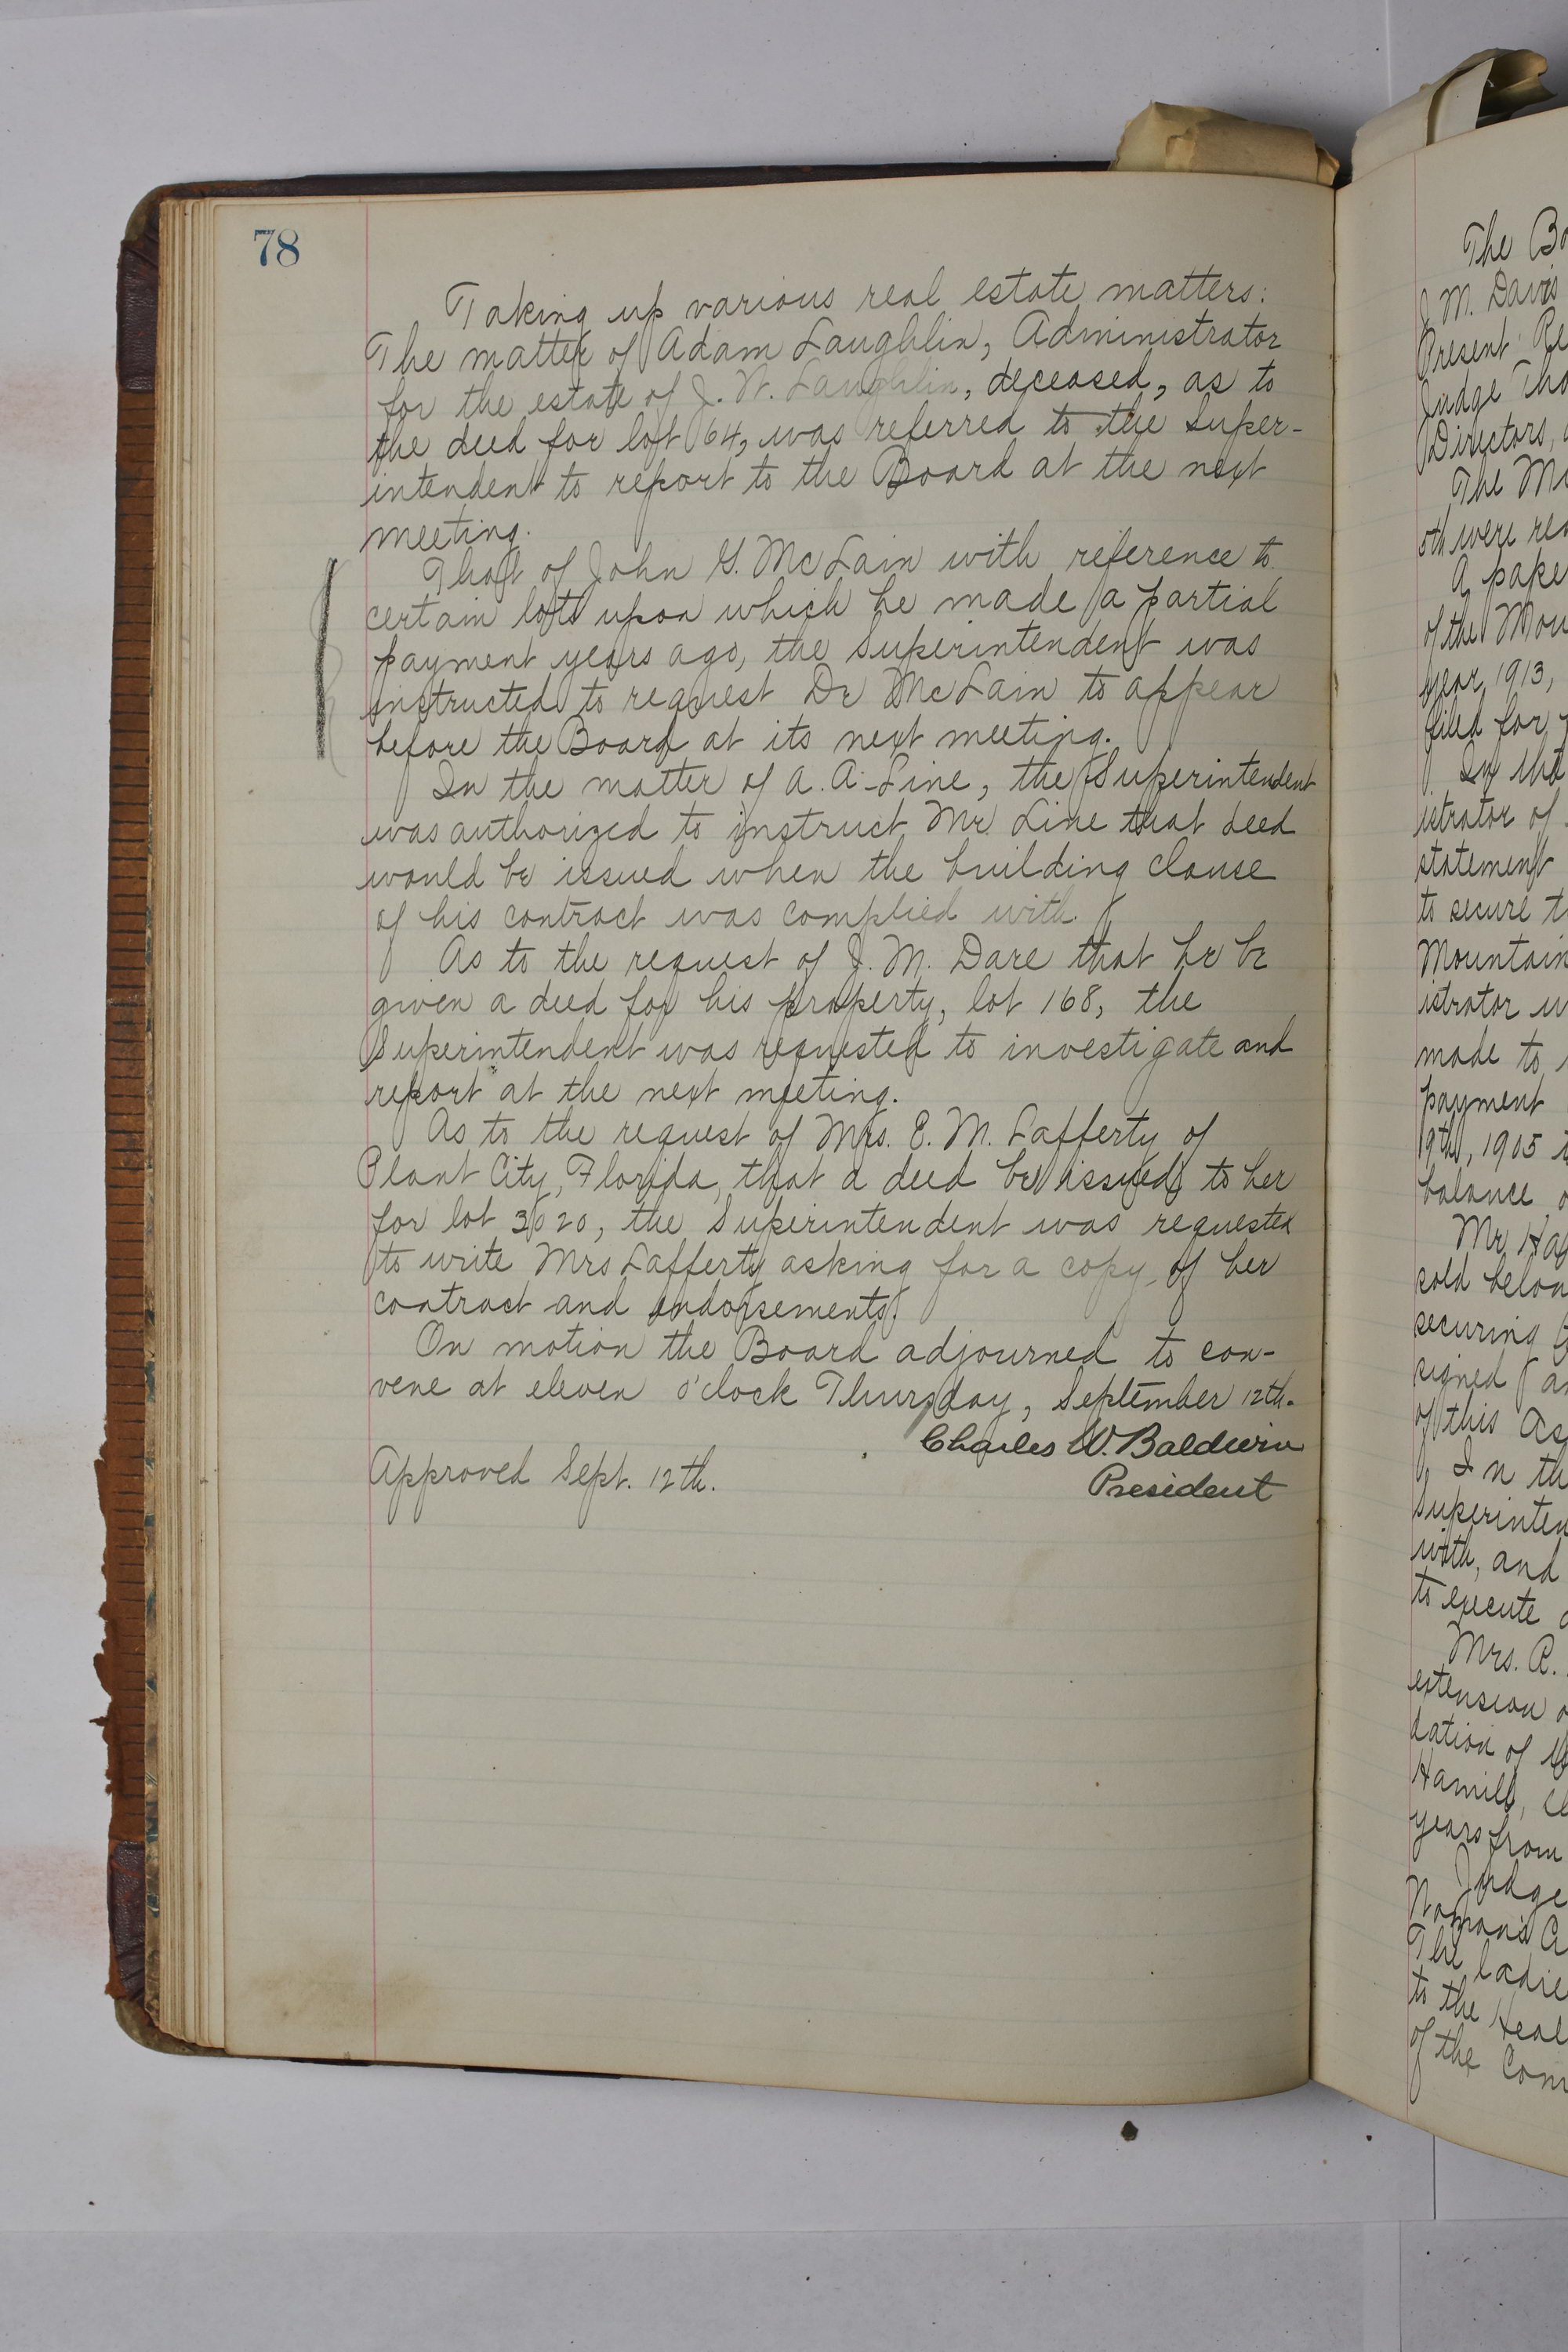 78
Taking up various real estate matters:
The matter of Adam Laughlin, Administrator
for the estate of J. W. Laughlin, deceased, as to
the deed for lot 64, was referred to the Super-
intendent to report to the Board at the next
meeting.
That of John G. McLain with reference to
certain lots upon which he made a partial
payment years ago, the Superintendent was
instructed to request Dr McLain to appear
before the Board at its next meeting.
In the matter of A. A. Line, the Superintendent
was authorized to instruct Mr. Line that deed
would be issued when the building clause
of his contract was complied with.
As to the request of J. M. Dare that he be
given a deed for his property, lot 168, the
Superintendent was requested to investigate and
report at the next meeting.
As to the request of Mrs. E. M. Lafferty of
Plant City, Florida, that a deed be issued to her
for lot 3020, the Superintendent was requested
to write Mrs Lafferty asking for a copy of her
contract and endorsements.
On motion the Board adjourned to con-
vene at eleven o'clock Thursday, September 12th.
Charles W. Baldwin
Approved Sept. 12th.
President
The Bo
J. M. Davis
Present Re
Judge Tho
Directors,
The Mi
5th were rea
A pape
of the Mou
year 1913,
filed for
In the
istrator of
statement
to secure t
Mountain
istrator w
made to
payment
19th, 1905
balance o
Mr Ha
sold belon
securing
signed
of this As
In th
Superinten
with, and
to execute
Mrs. R.
extension o
dation of
Hamill,
years from
Judge
Woman's A
The ladie
to the Heal
of the Com